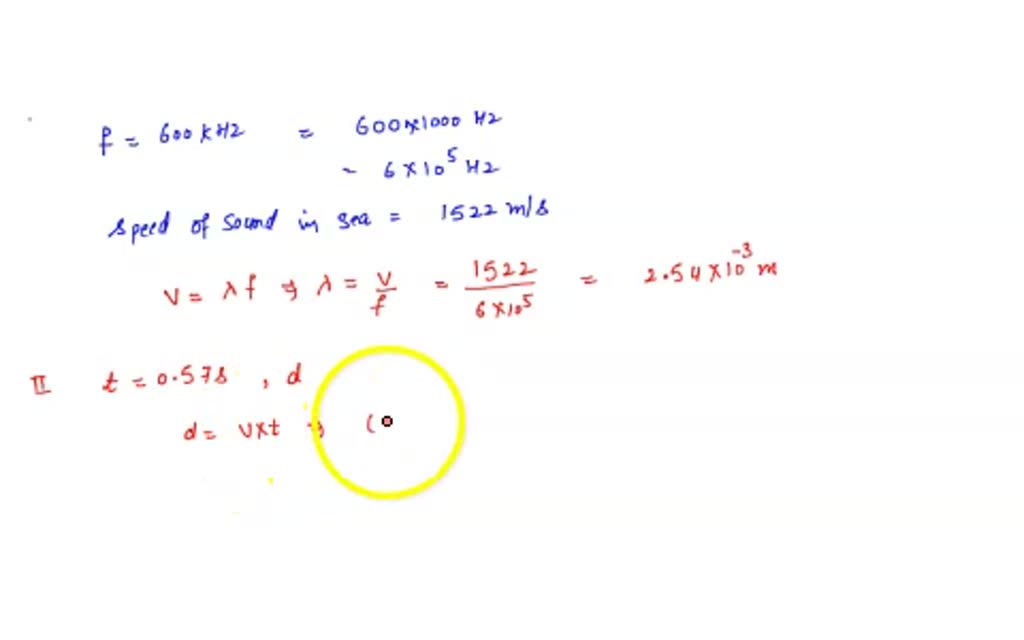 f = 600 kHz = 600×1000 Hz
= 6×10⁵ Hz
speed of sound in sea = 1522 m/s
v = λf ⇒ λ = v/f = 1522/6×10⁵ = 2.54×10⁻³ m
II t = 0.57s , d
d = v×t ⇒ (